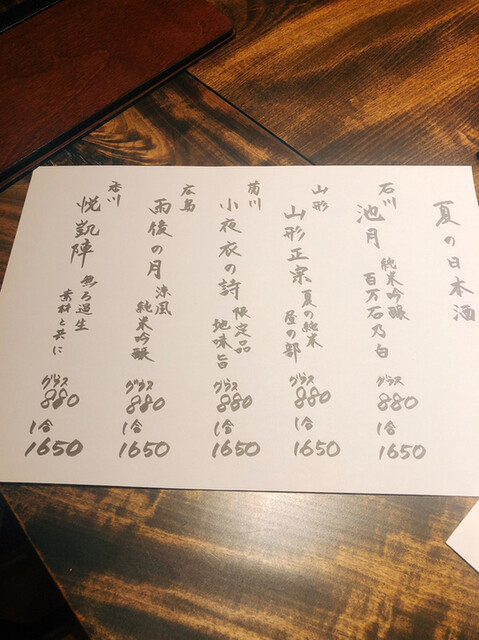 夏の日本酒
石川
池月 純米吟醸
百万石乃白
グラス
880
1合
1650
山形
山形正宗 夏の純米
屋の部
グラス
880
1合
1650
菊川
小夜衣の詩 限定品
地味旨
グラス
880
1合
1650
広島
雨後の月 涼風
純米吟醸
グラス
880
1合
1650
香川
悦凱陣 無ろ過生
素材と共に
グラス
880
1合
1650